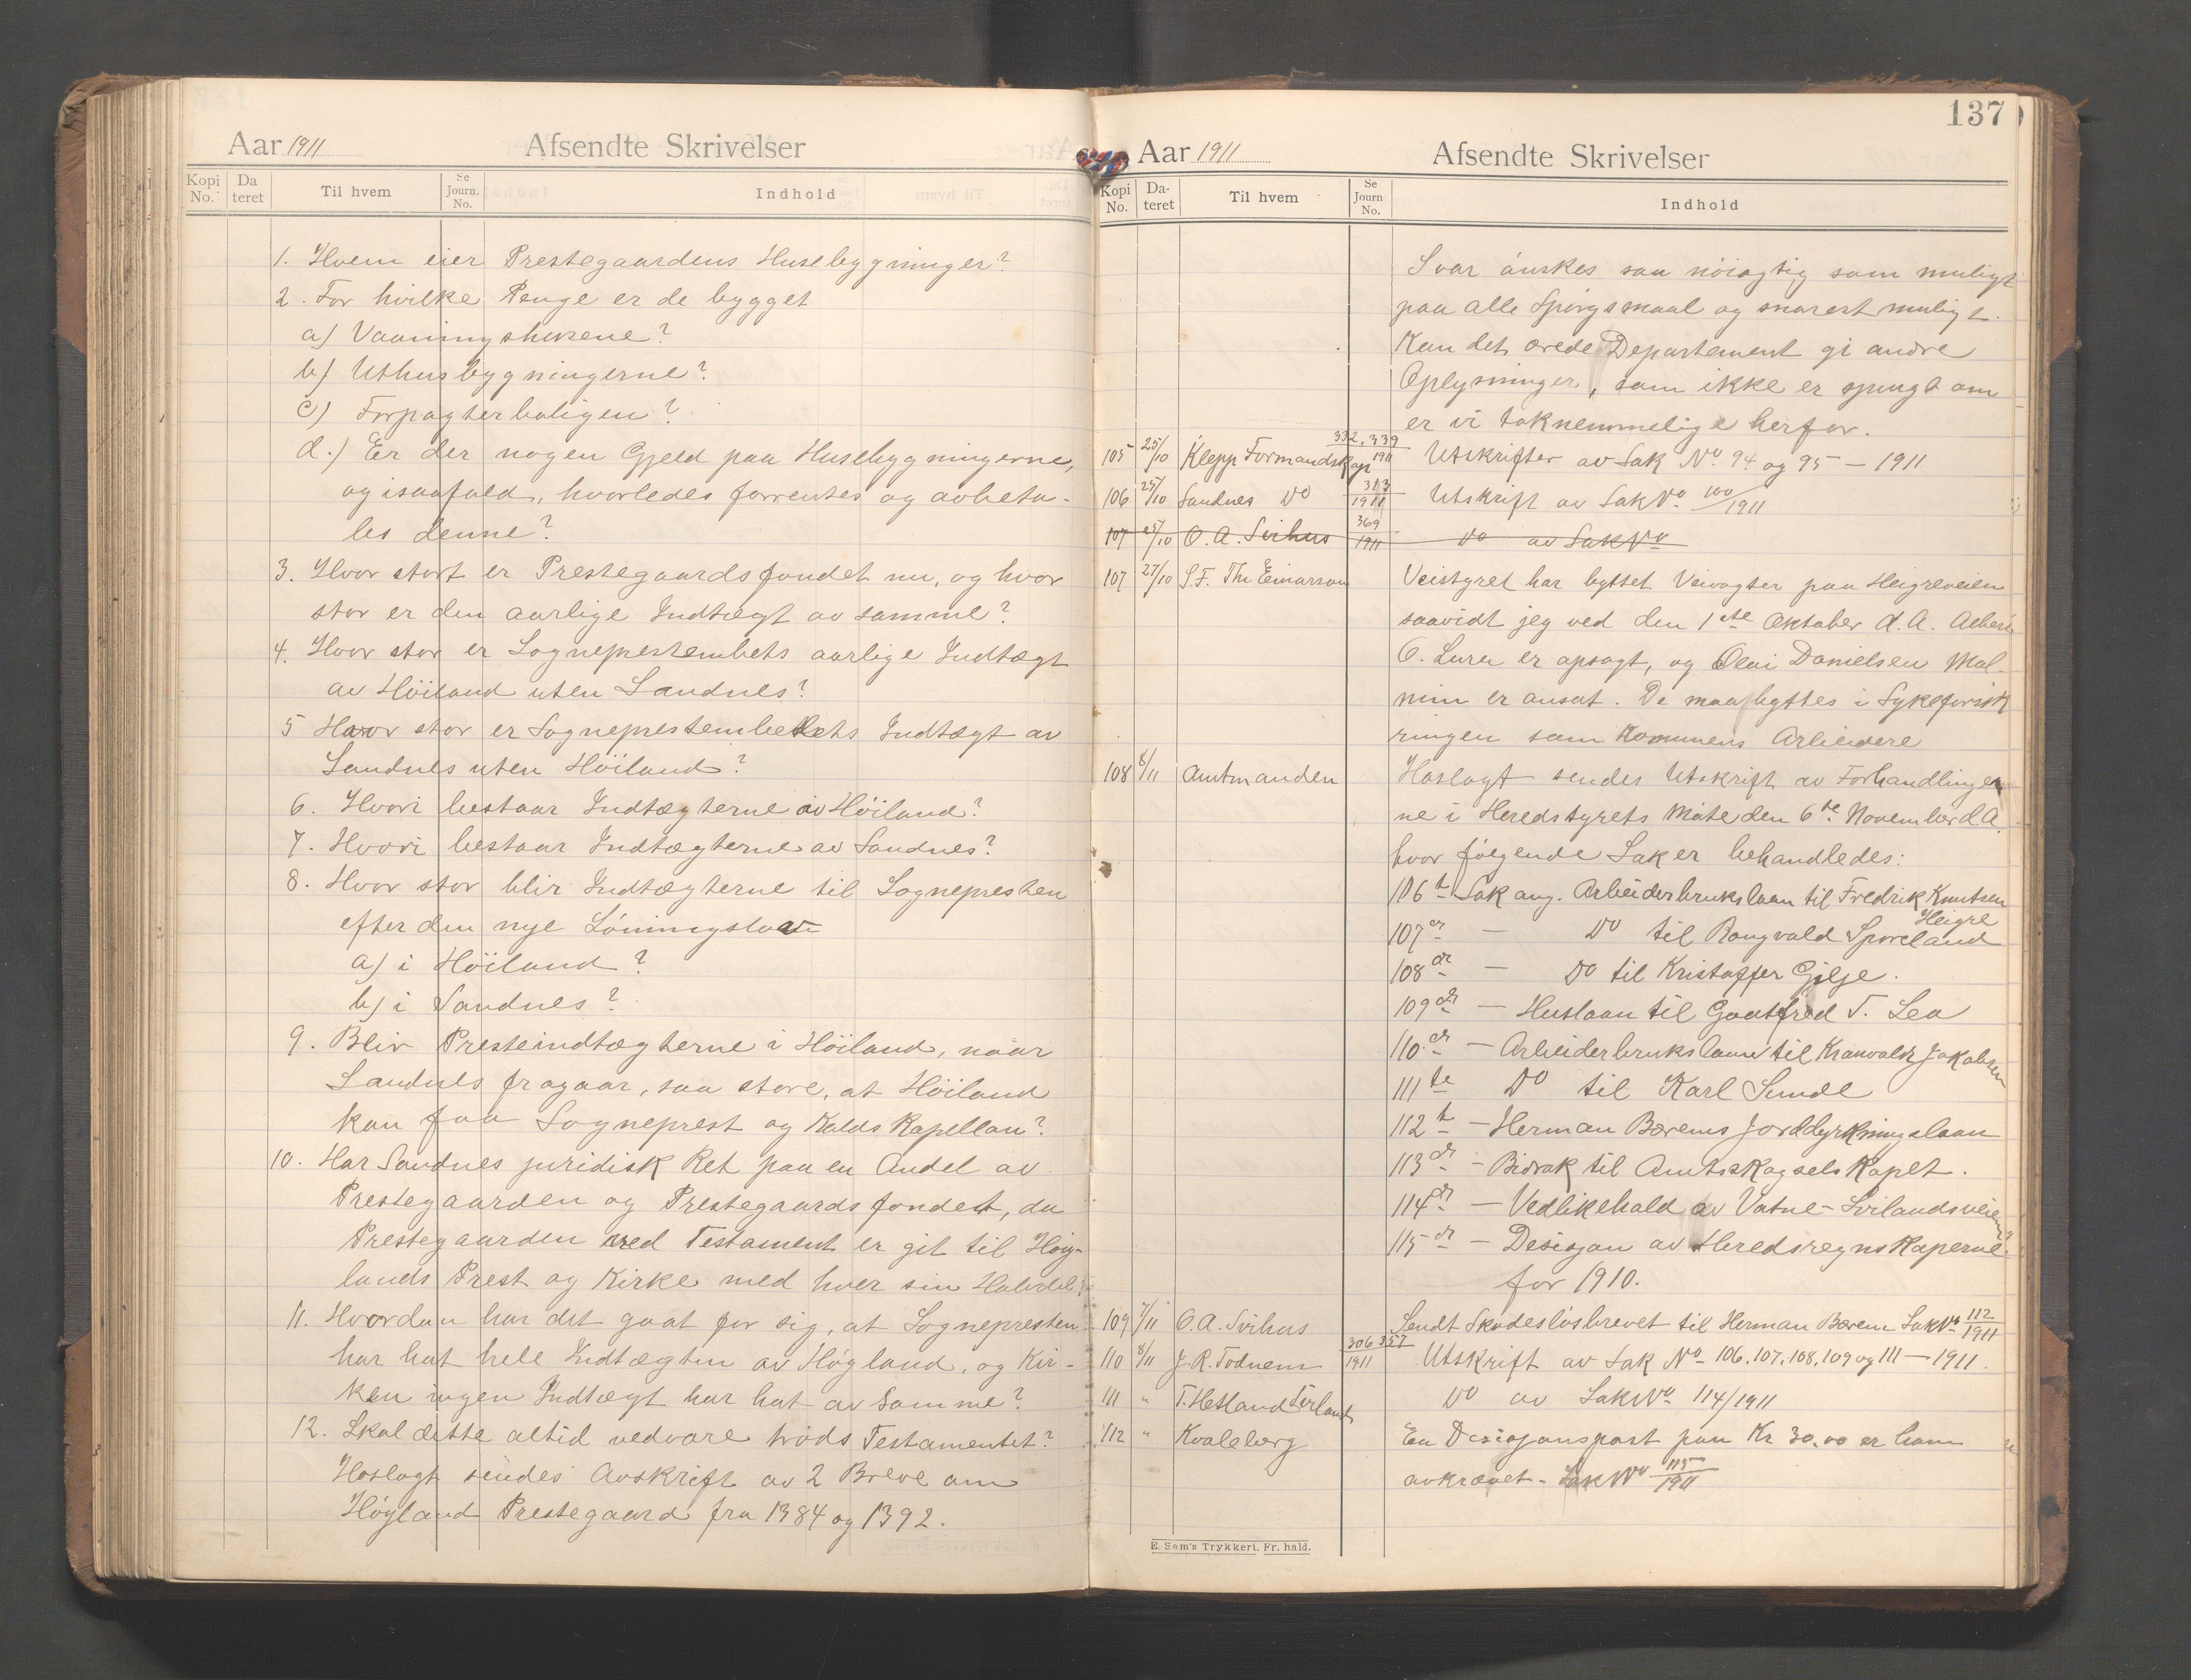 Aar 1911 Afsendte Skrivelser
Kopi No. Da teret Til hvem Se Journ. No. Indhold
1. Hvem eier Prestegaardens Husebygninger?
2. For hvilke Penge er de bygget
a) Vaaningshusene?
b) Uthusbygningerne?
c) Forpagterboligen?
d.) Er der nogen Gjeld paa Husebygningerne,
og isaafald, hvorledes forrentes og avbeta-
les denne?
3. Hvor stort er Prestegaardsfondet nu, og hvor
stor er den aarlige Indtægt av samme?
4. Hvor stor er Sogneprestembets aarlige Indtægt
av Höiland uten Sandnes?
5 Hvor stor er Sogneprestembedets Indtægt av
Sandnes uten Höiland?
6. Hvori bestaar Indtægterne av Höiland?
7. Hvori bestaar Indtægterne av Sandnes?
8. Hvor stor blir Indtægterne til Sognepresten
efter den nye Lóningslov
a) i Höiland?
b) i Sandnes?
9. Blir Presteindtægterne i Höiland, naar
Sandnes fragaar, saa store, at Höiland
kan faa Sogneprest og Kalds Kapellan?
10. Har Sandnes juridisk Ret paa en Andel av
Prestegaarden og Prestegaardsfondet, da
Prestegaarden ved Testament er git til Høy-
lands Prest og Kirke med hver sin Halvdel?
11. Hvordan har det gaat for sig, at Sognepresten
har hat hele Indtægten av Høyland, og Kir-
ken ingen Indtægt har hat av samme?
12. Skal dette altid vedvare tróds Testamentet?
Hoslagt sendes Avskrift av 2 Breve om
Høyland Prestegaard fra 1384 og 1392.
137
Aar 1911 Afsendte Skrivelser
Kopi No. Da- teret Til hvem Se Journ No. Indhold
Svar ónskes saa nóiagtig som muligt
paa alle Spórgsmaal og snarest muligt.
Kan det ærede Departement gi andre
Oplysninger, som ikke er spurgt om
er vi taknemmelige herfor.
105 25/10 Klepp Formandskap 332.339 1911 Utskrifter av Sak No. 94 og 95 - 1911
106 25/10 Sandnes Do 313/1911 Utskrift av Sak No. 100/1911
107 25/10 O. A. Svihus 369/1911 Do av Sak No
107 27/10 S.F. Th Einarson Veistyret har byttet Veivogter paa Heigreveien
saavidt jeg ved den 1ste Oktober d. A. Albert
O. Lura er opsagt, og Olai Danielsen Mal-
min er ansat. De maa byttes i Sykeforsik
ringen som Kommunens Arbeidere
108 8/11 Amtmanden Hoslagt sendes Utskrift av Forhandlinger
ne i Heredstyrets Móte den 6te November d.A.
hvor fólgende Saker behandledes:
106te Sak ang. Arbeiderbrukslaan til Fredrik Knutsen
Heigre
107de - Do til Rongvald Sporeland
108de - Do til Kristoffer Gilje.
109de - Huslaan til Gootfred T. Lea
110de - Arbeiderbrukslaan til Kranvald Jakobsen
111te Do til Karl Sunde
112te - Herman Bærems Jorddyrkningslaan
113de - Bidrak til Amtsskogselskapet.
114de - Vedlikehold av Vatne - Svilandsveien
115de - Desisjon av Heredsregnskaperne
for 1910.
109 7/11 O. A. Svihus Sendt Skadeslósbrevet til Herman Bærem Sak No 112/1911
110 8/11 J. R. Todnem 306 357 1911 Utskrift av Sak No 106, 107, 108, 109 og 111 - 1911.
111 " T. Hetland Sviland Do av Sak No 114/1911
112 " Kvaleberg En Desisjonspost paa Kr 30.00 er ham
avkrævet. Sak No 115/1911
E. Sem's Trykkeri, Fr. hald.